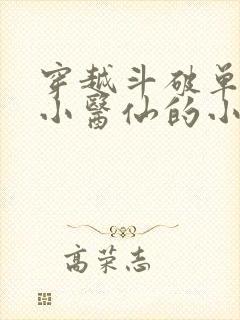 穿越斗破单
小醫仙的小
高荣志